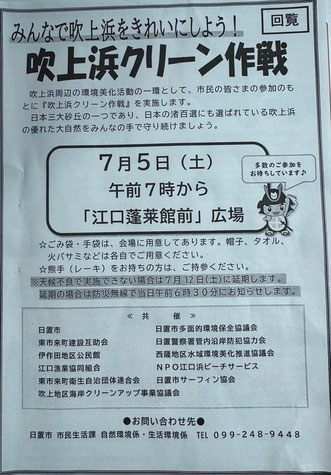 みんなで吹上浜をきれいにしよう！
回覧
吹上浜クリーン作戦
吹上浜周辺の環境美化活動の一環として、市民の皆さまの参加のも
とに『吹上浜クリーン作戦』を実施します。
日本三大砂丘の一つであり、日本の渚百選にも選ばれている吹上浜
の優れた大自然をみんなの手で守り続けましょう。
7月5日（土）
午前7時から
「江口蓬莱館前」広場
多数のご参加を
お待ちしています♪
☆ごみ袋・手袋は、会場に用意してあります。帽子、タオル、
火バサミなどは各自でご用意ください。
☆熊手（レーキ）をお持ちの方は、ご持参ください。
※天候不良で実施できない場合は7月12日(土)に延期します。
延期の場合は防災無線で当日午前6時30分にお知らせします。
≪ 共 催 ≫
日置市
東市来町建設互助会
伊作田地区公民館
江口漁業協同組合
東市来町衛生自治団体連合会
吹上地区海岸クリーンアップ事業協議会
日置市多面的環境保全協議会
日置警察署管内沿岸防犯協力会
西薩地区水域環境美化推進協議会
NPO江口浜ビーチサービス
日置市サーフィン協会
●お問い合わせ先●
日置市 市民生活課 自然環境係・生活環境係 TEL 099-248-9448